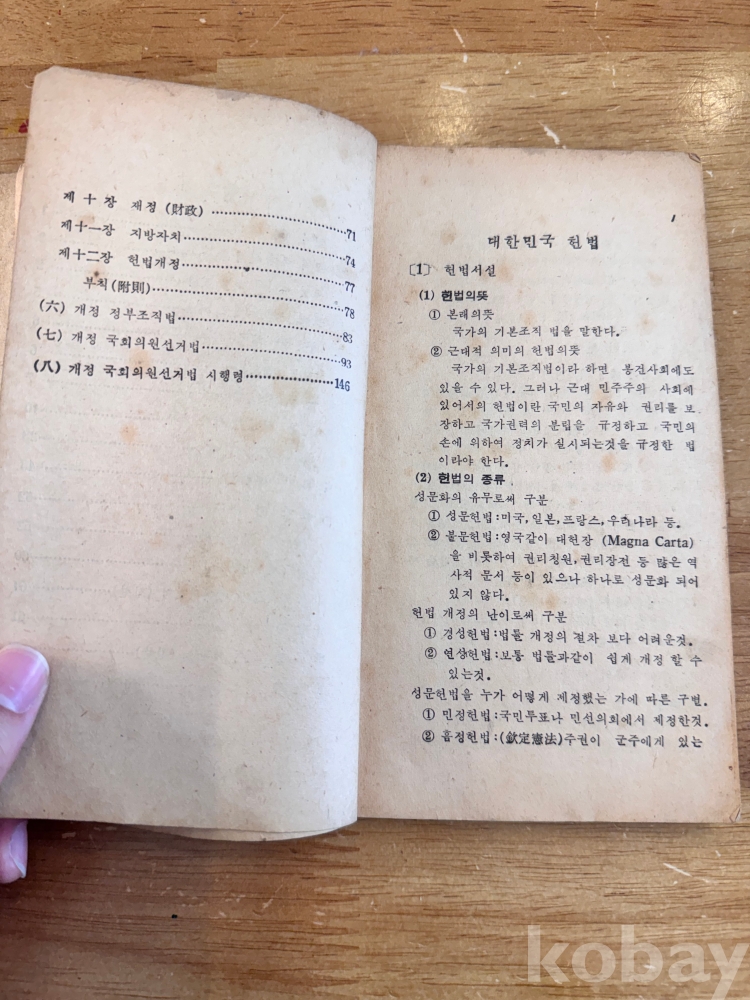 제 十 장 재정 (財政) ……………………71
제十一장 지방자치 ……………………74
제十二장 헌법개정 ……………………77
부칙(附則) ……………………78
(六) 개정 정부조직법 ……………………83
(七) 개정 국회의원선거법 ……………………93
(八) 개정 국회의원선거법 시행령 ……………………146
1
대한민국 헌법
〔1〕 헌법서설
(1) 헌법의뜻
① 본래의뜻
국가의 기본조직 법을 말한다.
② 근대적 의미의 헌법의뜻
국가의 기본조직법이라 하면 봉건사회에도
있을 수 있다. 그러나 근대 민주주의 사회에
있어서의 헌법이란 국민의 자유와 권리를 보
장하고 국가권력의 분립을 규정하고 국민의
손에 의하여 정치가 실시되는것을 규정한 법
이라야 한다.
(2) 헌법의 종류
성문화의 유무로써 구분
① 성문헌법:미국, 일본, 프랑스, 우리나라 등.
② 불문헌법:영국같이 대헌장 (Magna Carta)
을 비롯하여 권리청원, 권리장전 등 많은 역
사적 문서 등이 있으나 하나로 성문화 되어
있지 않다.
헌법 개정의 난이로써 구분
① 경성헌법:법률 개정의 절차 보다 어려운것.
② 연성헌법:보통 법률과같이 쉽게 개정 할 수
있는것.
성문헌법을 누가 어떻게 제정했는 가에 따른 구별.
① 민정헌법:국민투표나 민선의회에서 제정한것.
② 흠정헌법:(欽定憲法)주권이 군주에게 있는
kobay